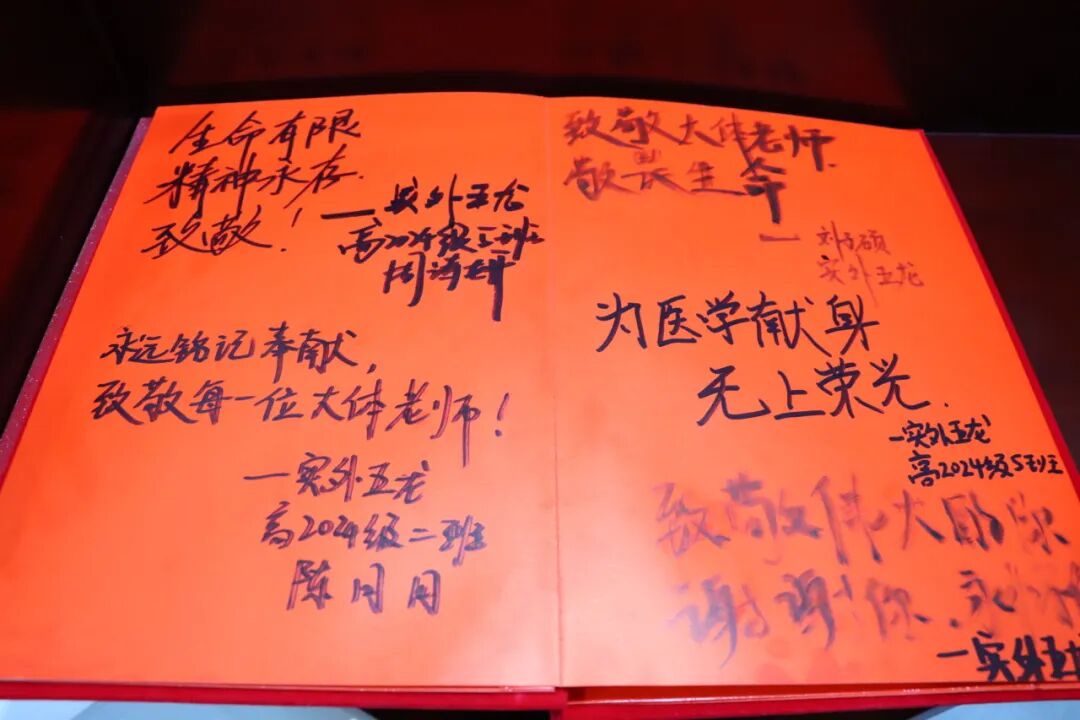 生命有限
精神永存.
致敬!
一实外五龙
高2024级三班
永远铭记奉献,
致敬每一位大体老师!
一实外五龙
高2024级二班
陈月月
致敬大体老师.
敬畏生命
一
实外五龙
为医学献身
无上荣光.
一实外五龙
高2024级5班
致敬伟大的你
谢谢你.
一实外五龙